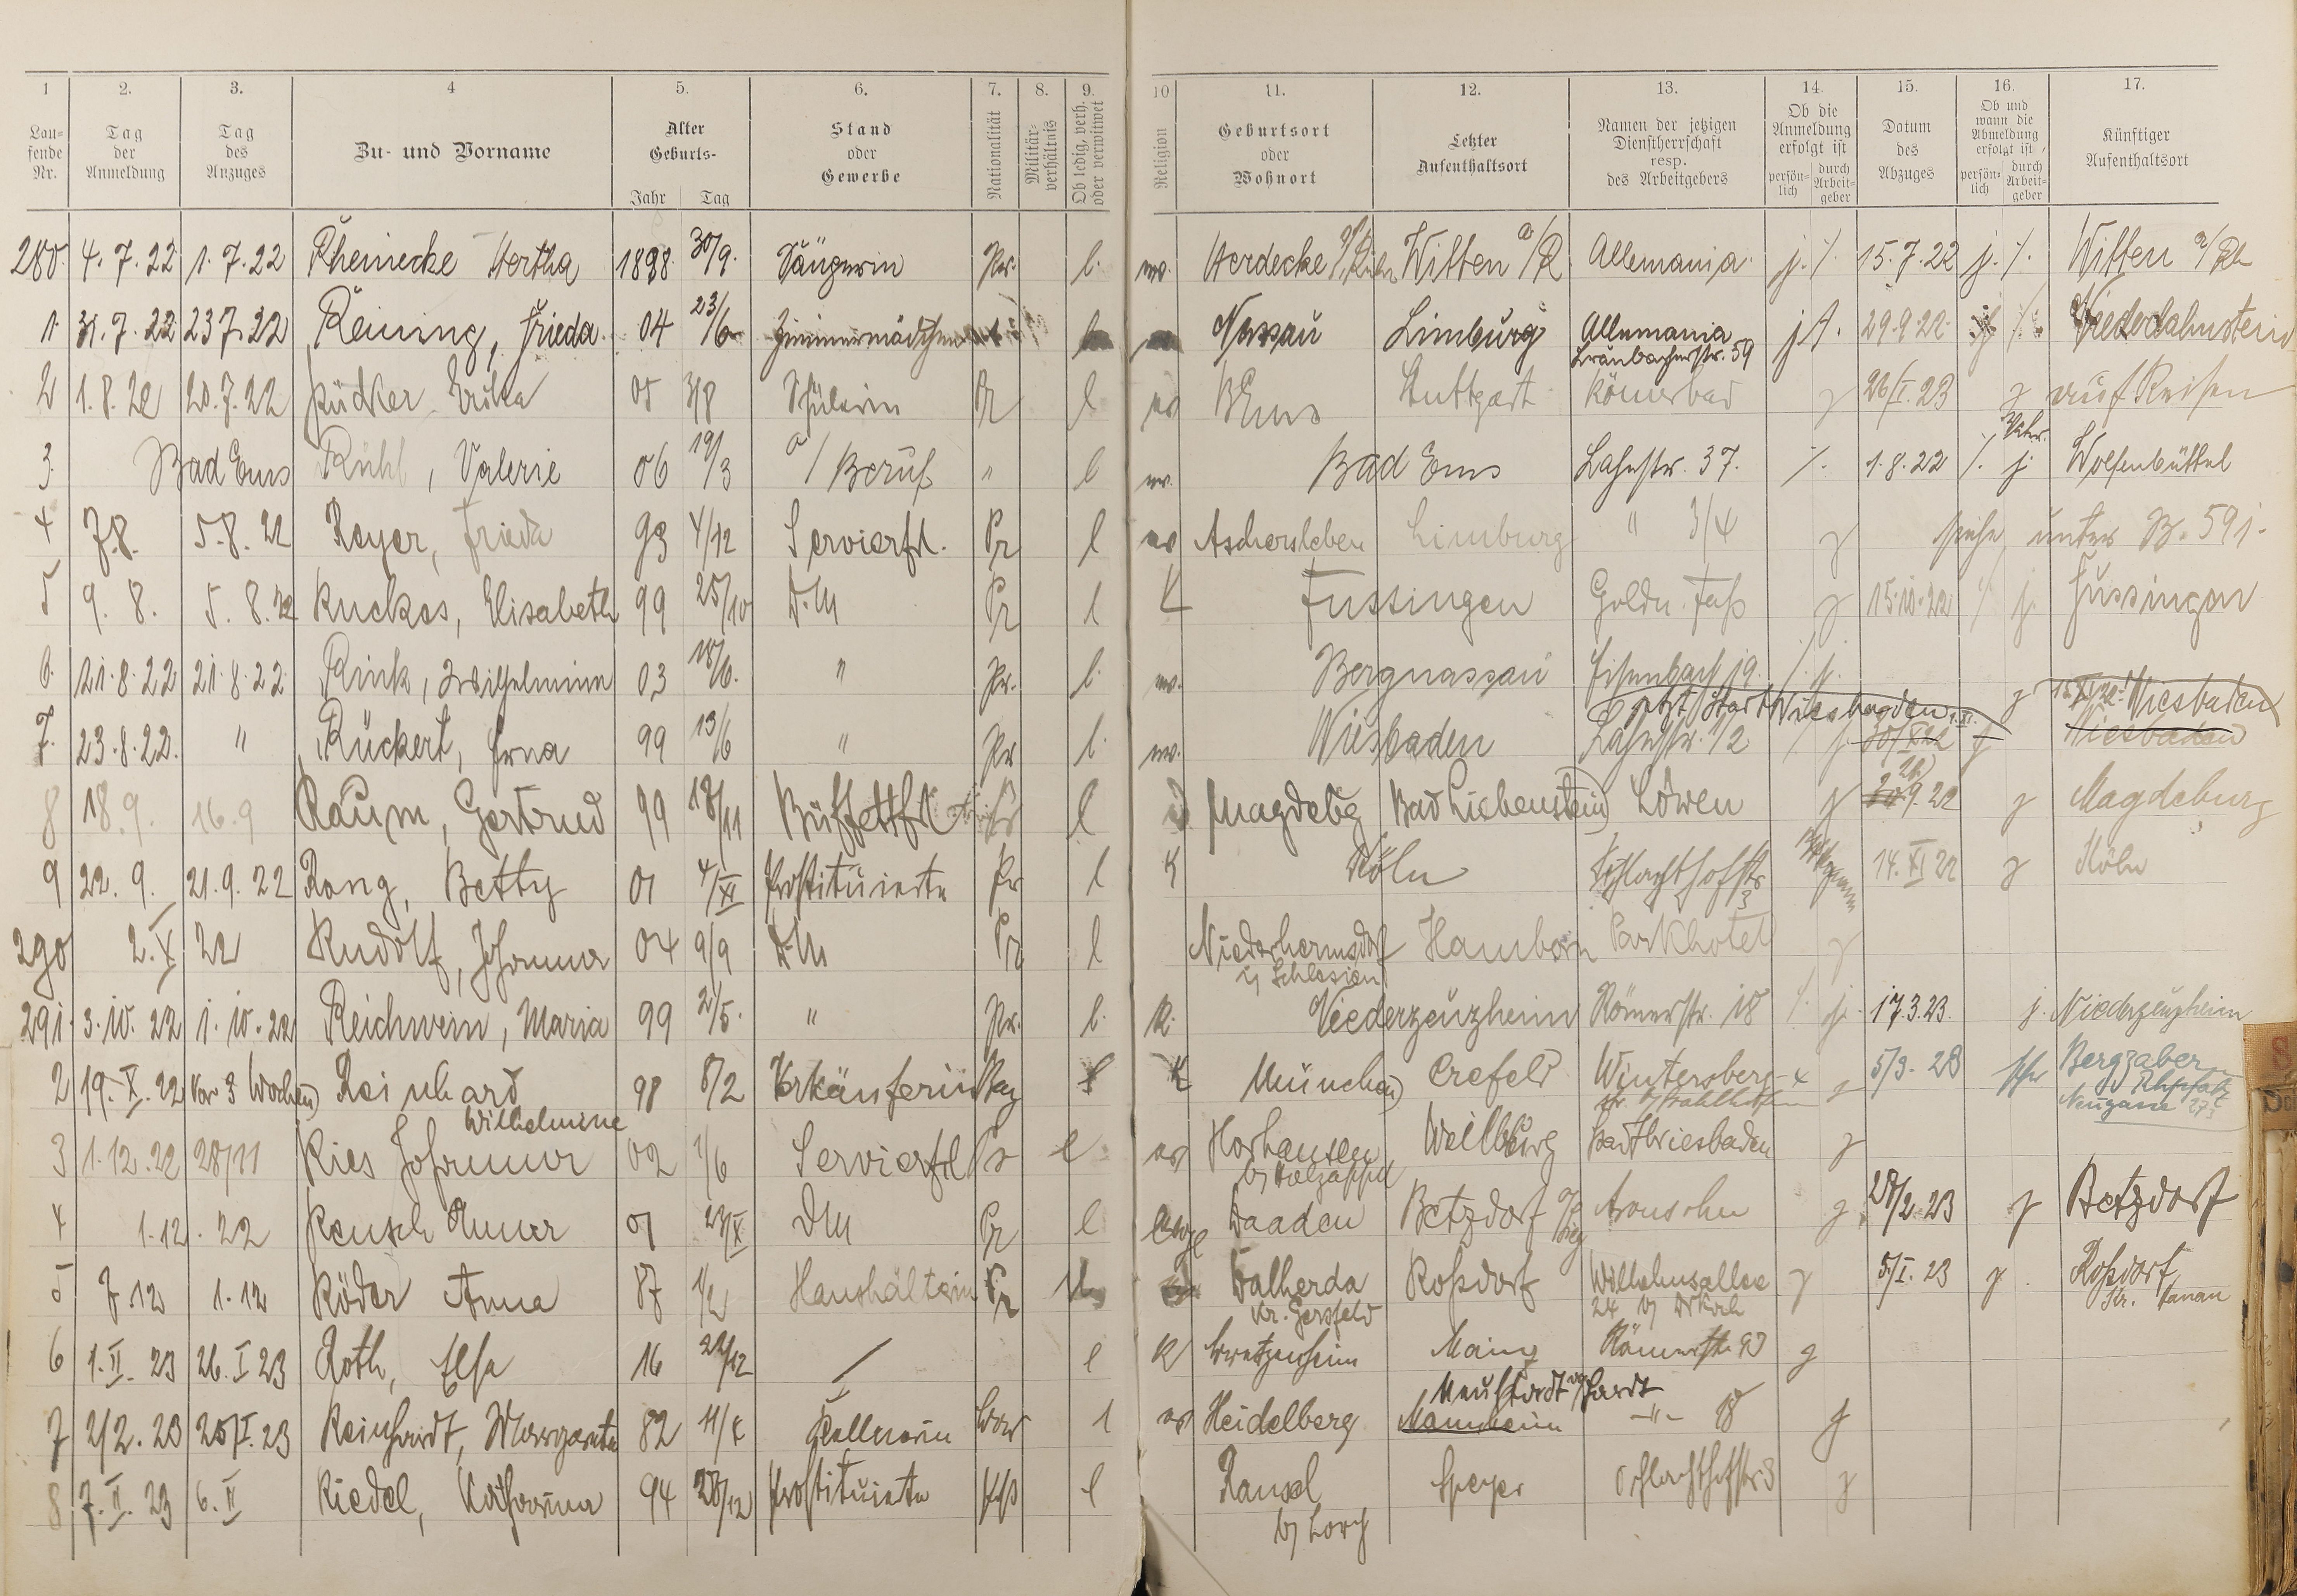 1 2. 3. 4 5. 6. 7. 8. 9. 10 11. 12. 13. 14. 15. 16. 17.
Lau-fende Nr. Tag der Anmeldung Tag des Anzuges Zu- und Vorname Alter Geburts- Jahr Tag Stand oder Gewerbe Nationalität Militär-verhältnis Ob ledig, verh. oder verwitwet Religion Geburtsort oder Wohnort Letzter Aufenthaltsort Namen der jetzigen Dienstherrschaft resp. des Arbeitgebers Ob die Anmeldung erfolgt ist persön-lich durch Arbeit-geber Datum des Abzuges Ob und wann die Abmeldung erfolgt ist persön-lich durch Arbeit-geber Künftiger Aufenthaltsort
280. 4.7.22 1.7.22 Rheinecke Hertha 1898. 30/9. Sängerin Pr. l. ev. Herdecke a/Ruhr Witten a/R Allemania j. /. 15.7.22 j. /. Witten a/Rh
1. 31.7.22 23 7.22 Reining, Frieda. 04 23/6 Zimmermädchen Nassau Limburg Allemania j /. 29.9.22. Niederlahnstein
Granbagnerstr. 59
2 1.8.22 20.7.22 Rücker Erika 05 3/8 Schülerin Pr l ev BEms Stuttgart Römerbad j 26/I.23 j auf Reisen
3. Bad Ems Rühl, Valerie 06 19/3 o/Beruf " l ev. Bad Ems Lahnstr. 37. /. 1.8.22 /. j. Wolfenbüttel
4 7.8. 5.8.22 Reyer, Frieda 93 4/12 Servierfrl. Pr l ev Aschersleben Limburg " 3/4 j siehe unter B. 591.
5 9.8. 5.8.22 Ruckes, Elisabeth 99 25/10 D.M Pr l K Fussingen Goldn. Faß j 15.10.22 /. j. Fussingen
6. 21.8.22 21.8.22 Rink, Wilhelmine 03 18/6. " Pr. l. ev. Bergnassau Eisenbach 19. /. j.
jetzt Stadt Wiesbaden j Wiesbaden
7. 23.8.22. " Rückert, Erna 99 13/6 " Pr l. ev. Wiesbaden Lahnstr. 1/2 /. j. 30/X 22 j Wiesbaden
8 18.9. 16.9 Raum, Gertrud 99 18/11 Büffettfrl l Magdebg Bad Liebenstein Löwen j 26.9.22 j Magdeburg
9 22.9. 21.9.22 Rong, Betty 01 4/XI Prostituierte Pr l K Köln Schlachthofstr 3 14.XI 22 j Köln
290 2.X 22 Rudolf, Johanna 04 9/9 D.M Pr l Niederhermsdorf Hamborn Parkhotel j
i/ Schlesien
291. 3.10.22 1.10.22 Reichwein, Maria 99 2/5. " Pr. l. K. Niederzeuzheim Römerstr. 18 /. j. 17.3.23. j. Niederzeuzheim
2 19.X.22 vor 3 Wochen Reinhard 98 8/2 Verkäuferin Bay l K München Crefeld Wintersberg- j 5/3.23 Bergzabern
Wilhelmine Rhpfalz
Neugasse 275
3 1.12.22 28/11 Ries Johanna 02 1/6 Servierfrl Pr l ev Horhausen Weilburg Stadt Wiesbaden j
b/ Holzappel
4 1.12.22 Reusch Anna 01 27/X DM Pr l evgl Daaden Betzdorf a/Sieg Aronsohn j. 28/2.23 j Betzdorf
5 7.12 1.12 Röder Anna 87 1/2 Haushälterin Pr Dalherda Roßdorf Wilhelmsallee j 5/I.23 j. Roßdorf
Kr. Gersfeld 24 Kr. Hanau
6 1.II.23 26.I 23 Roth, Elsa 16 22/12 / l K Bretzenheim Mainz Römerstr. 92 j
Neustadt a/Hardt
7 2/2.23 25/I.23 Reinhardt, Margarete 82 11/4 Kellnerin l ev Heidelberg Mannheim -"- 18 j
8 7.II.23 6.II Riedel, Katharina 94 28/12 Prostituierte l Ransel Speyer Schlachthofstr 3 j
b/ Lorch